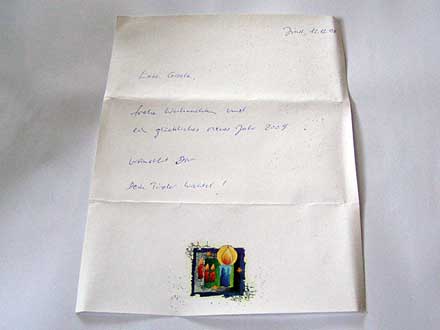 Liebe Gisela,
frohe Weihnachten und
ein glückliches neues Jahr 2009
wünscht Dir
Dein Tiroler